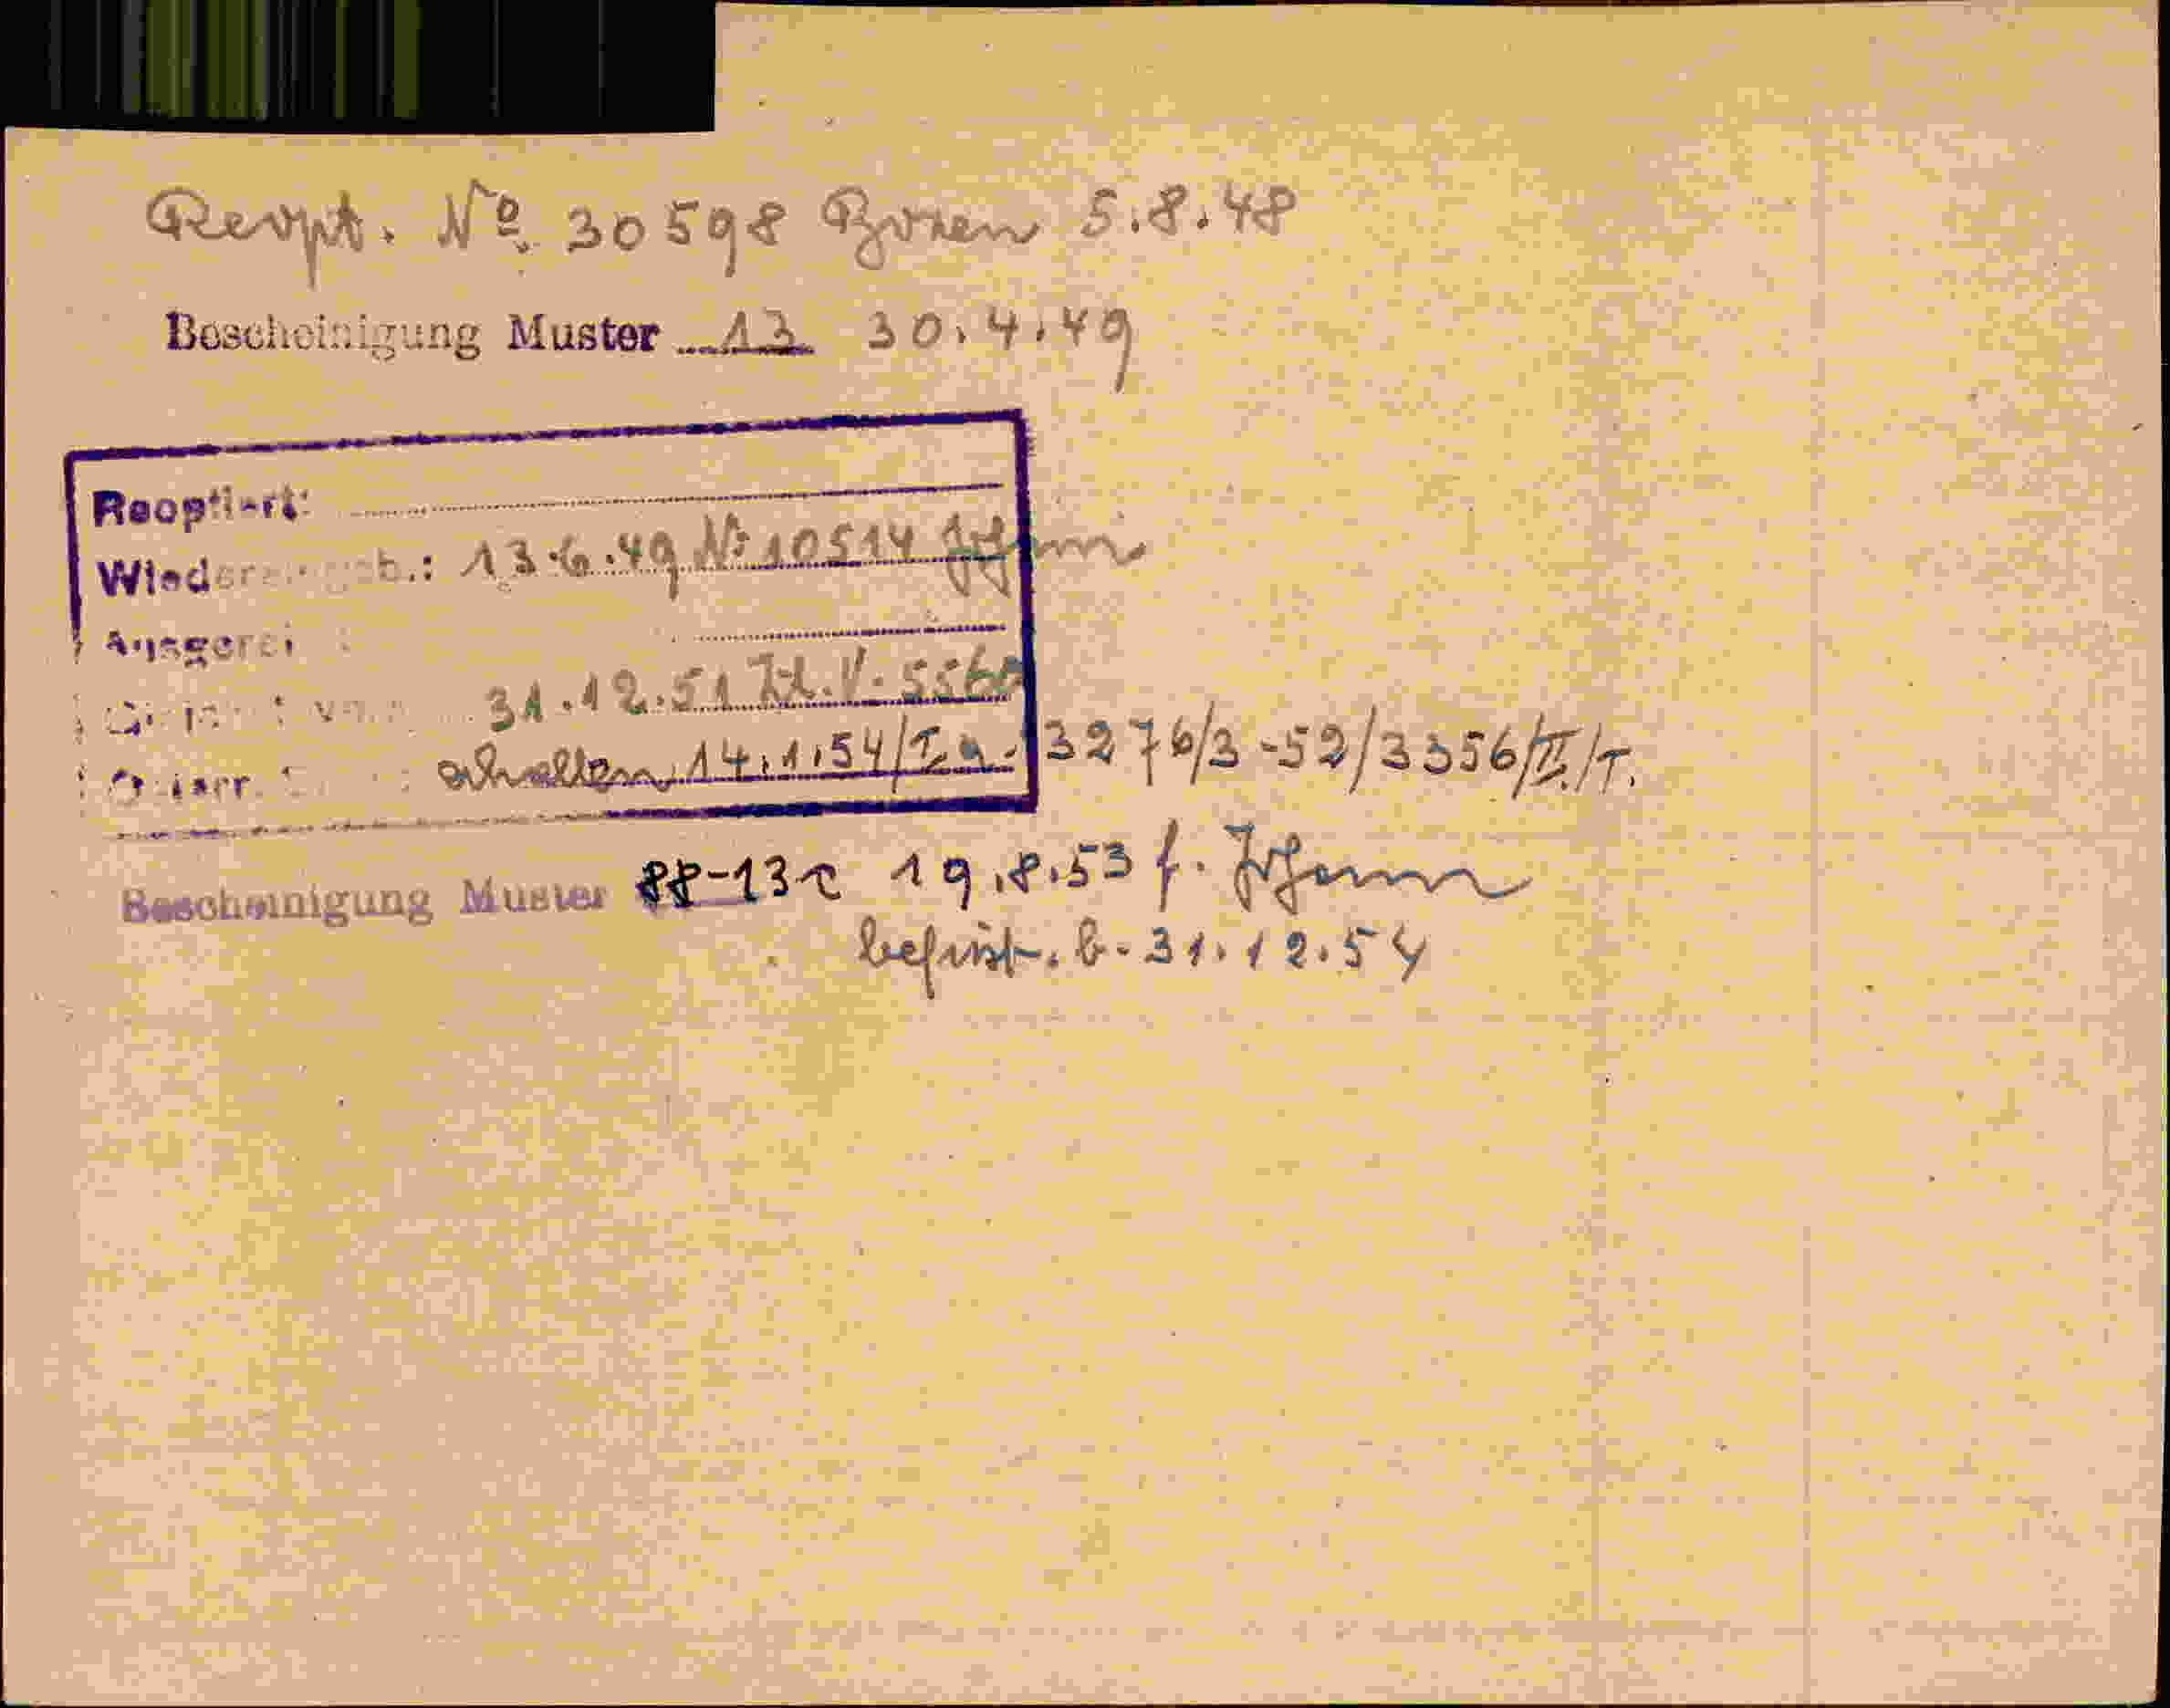 Reopt. Nº 30598 Bozen 5.8.48
Bescheinigung Muster 13 30.4.49
Reoptiert:
13.6.49 Nº 10514
31.12.51 Zl. V. 5560
erhalten 14.1.54/I a. 3276/3-52/3356/II/T.
Bescheinigung Muster 88-13 r 19.8.53 f.
befrist. b. 31.12.54